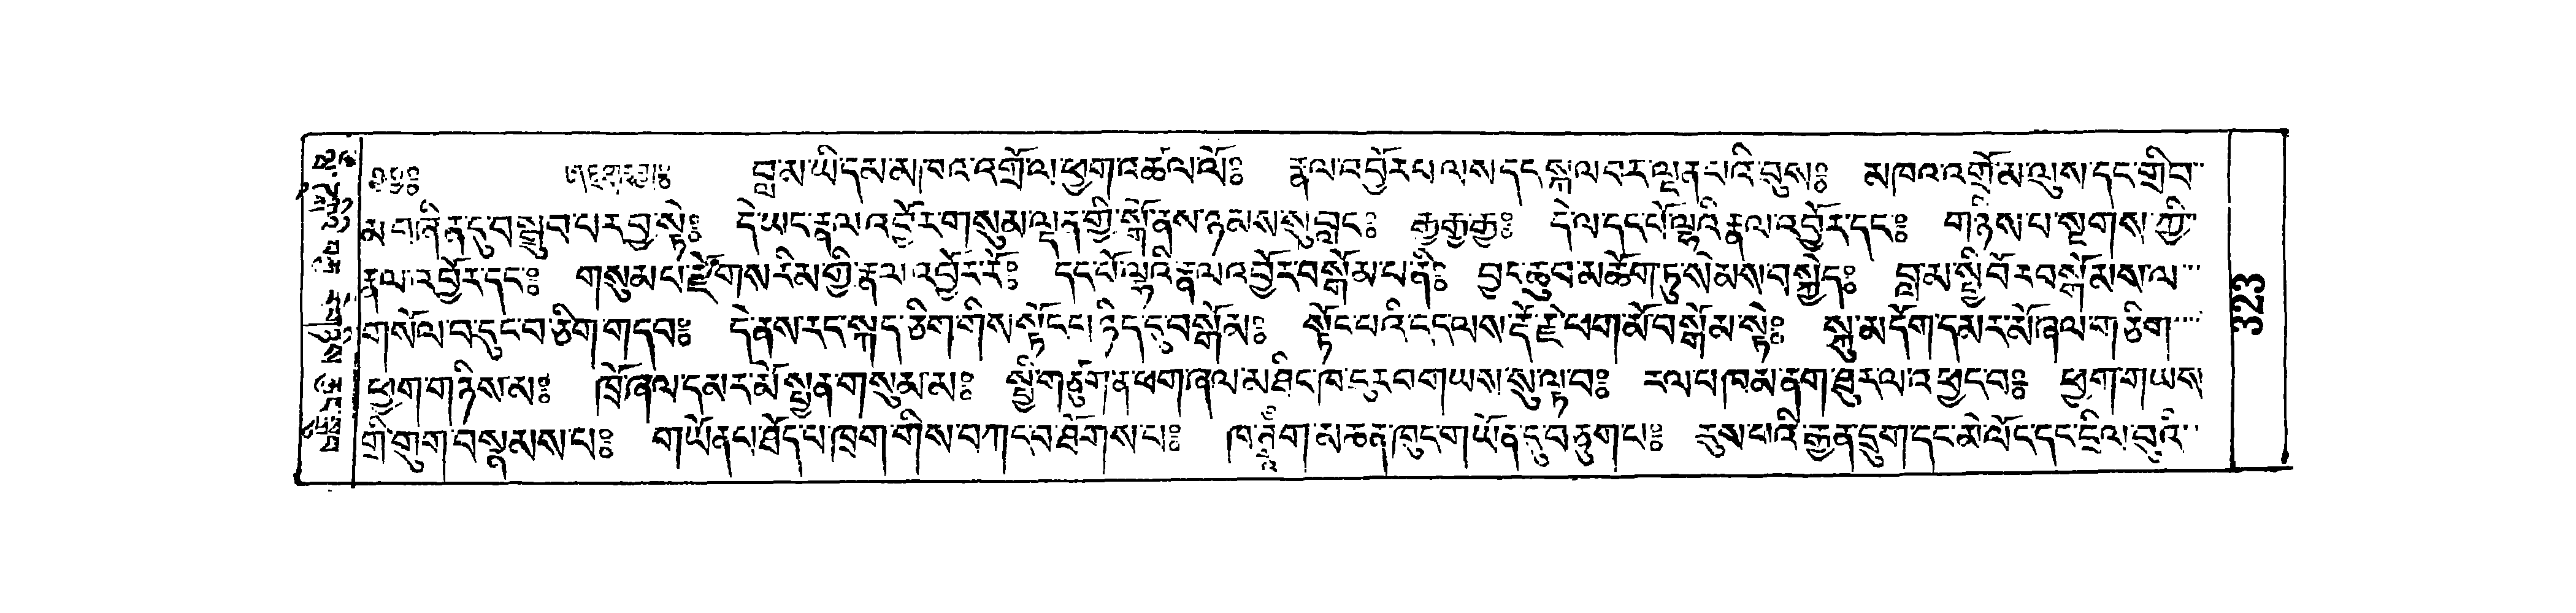 བླ་མ་ཡི་དམ་མཁའ་འགྲོ་ལ་ཕྱག་འཚལ་ལོ༔ རྣལ་འབྱོར་པ་ལས་དང་སྐལ་བར་ལྡན་པའི་བུས༔ མཁའ་འགྲོ་མ་ལུས་དང་གྲིབ་
མ་བཞིན་དུ་བསྒྲུབ་པར་བྱ་སྟེ༔ དེ་ཡང་རྣལ་འབྱོར་གསུམ་ལྡན་གྱི་སྒོ་ནས་ཉམས་སུ་བླང༔ རྒྱ་རྒྱ་རྒྱ༔ དེ་ལ་དང་པོ་ལྷའི་རྣལ་འབྱོར་དང༔ གཉིས་པ་སྔགས་ཀྱི་
རྣལ་འབྱོར་དང༔ གསུམ་པ་རྫོགས་རིམ་གྱི་རྣལ་འབྱོར་རོ༔ དང་པོ་ལྷའི་རྣལ་འབྱོར་བསྒོམ་པ་ནི༔ བྱང་ཆུབ་མཆོག་ཏུ་སེམས་བསྐྱེད༔ བླ་མ་སྤྱི་བོར་བསྒོམས་ལ་
གསོལ་བ་དུང་བ་ཅིག་གདབ༔ དེ་ནས་རང་སྐད་ཅིག་གིས་སྟོང་པ་ཉིད་དུ་བསྒོམ༔ སྟོང་པའི་ངང་ལས་རྡོ་རྗེ་ཕག་མོ་བསྒོམ་སྟེ༔ སྐུ་མདོག་དམར་མོ་ཞལ་གཅིག་
ཕྱག་གཉིས་མ༔ ཁྲོ་ཞལ་དམར་མོ་སྤྱན་གསུམ་མ༔ སྤྱི་གཙུག་ན་ཕག་ཞལ་མཐིང་ཁ་ངུར་བ་གཡས་སུ་ལྟ་བ༔ རལ་པ་ཁམ་ནག་ཐུར་ལ་འཕྱང་བ༔ ཕྱག་གཡས་
གྲི་གུག་བསྣམས་པ༔ གཡོན་པ་ཐོད་པ་ཁྲག་གིས་བཀང་བ་ཐོགས་པ༔ ཁ་ཊྭཱཾ་ག་མཆན་ཁུང་གཡོན་དུ་བཅུག་པ༔ རུས་པའི་རྒྱན་དྲུག་དང་མེ་ལོང་དང་དྲིལ་བུའི་